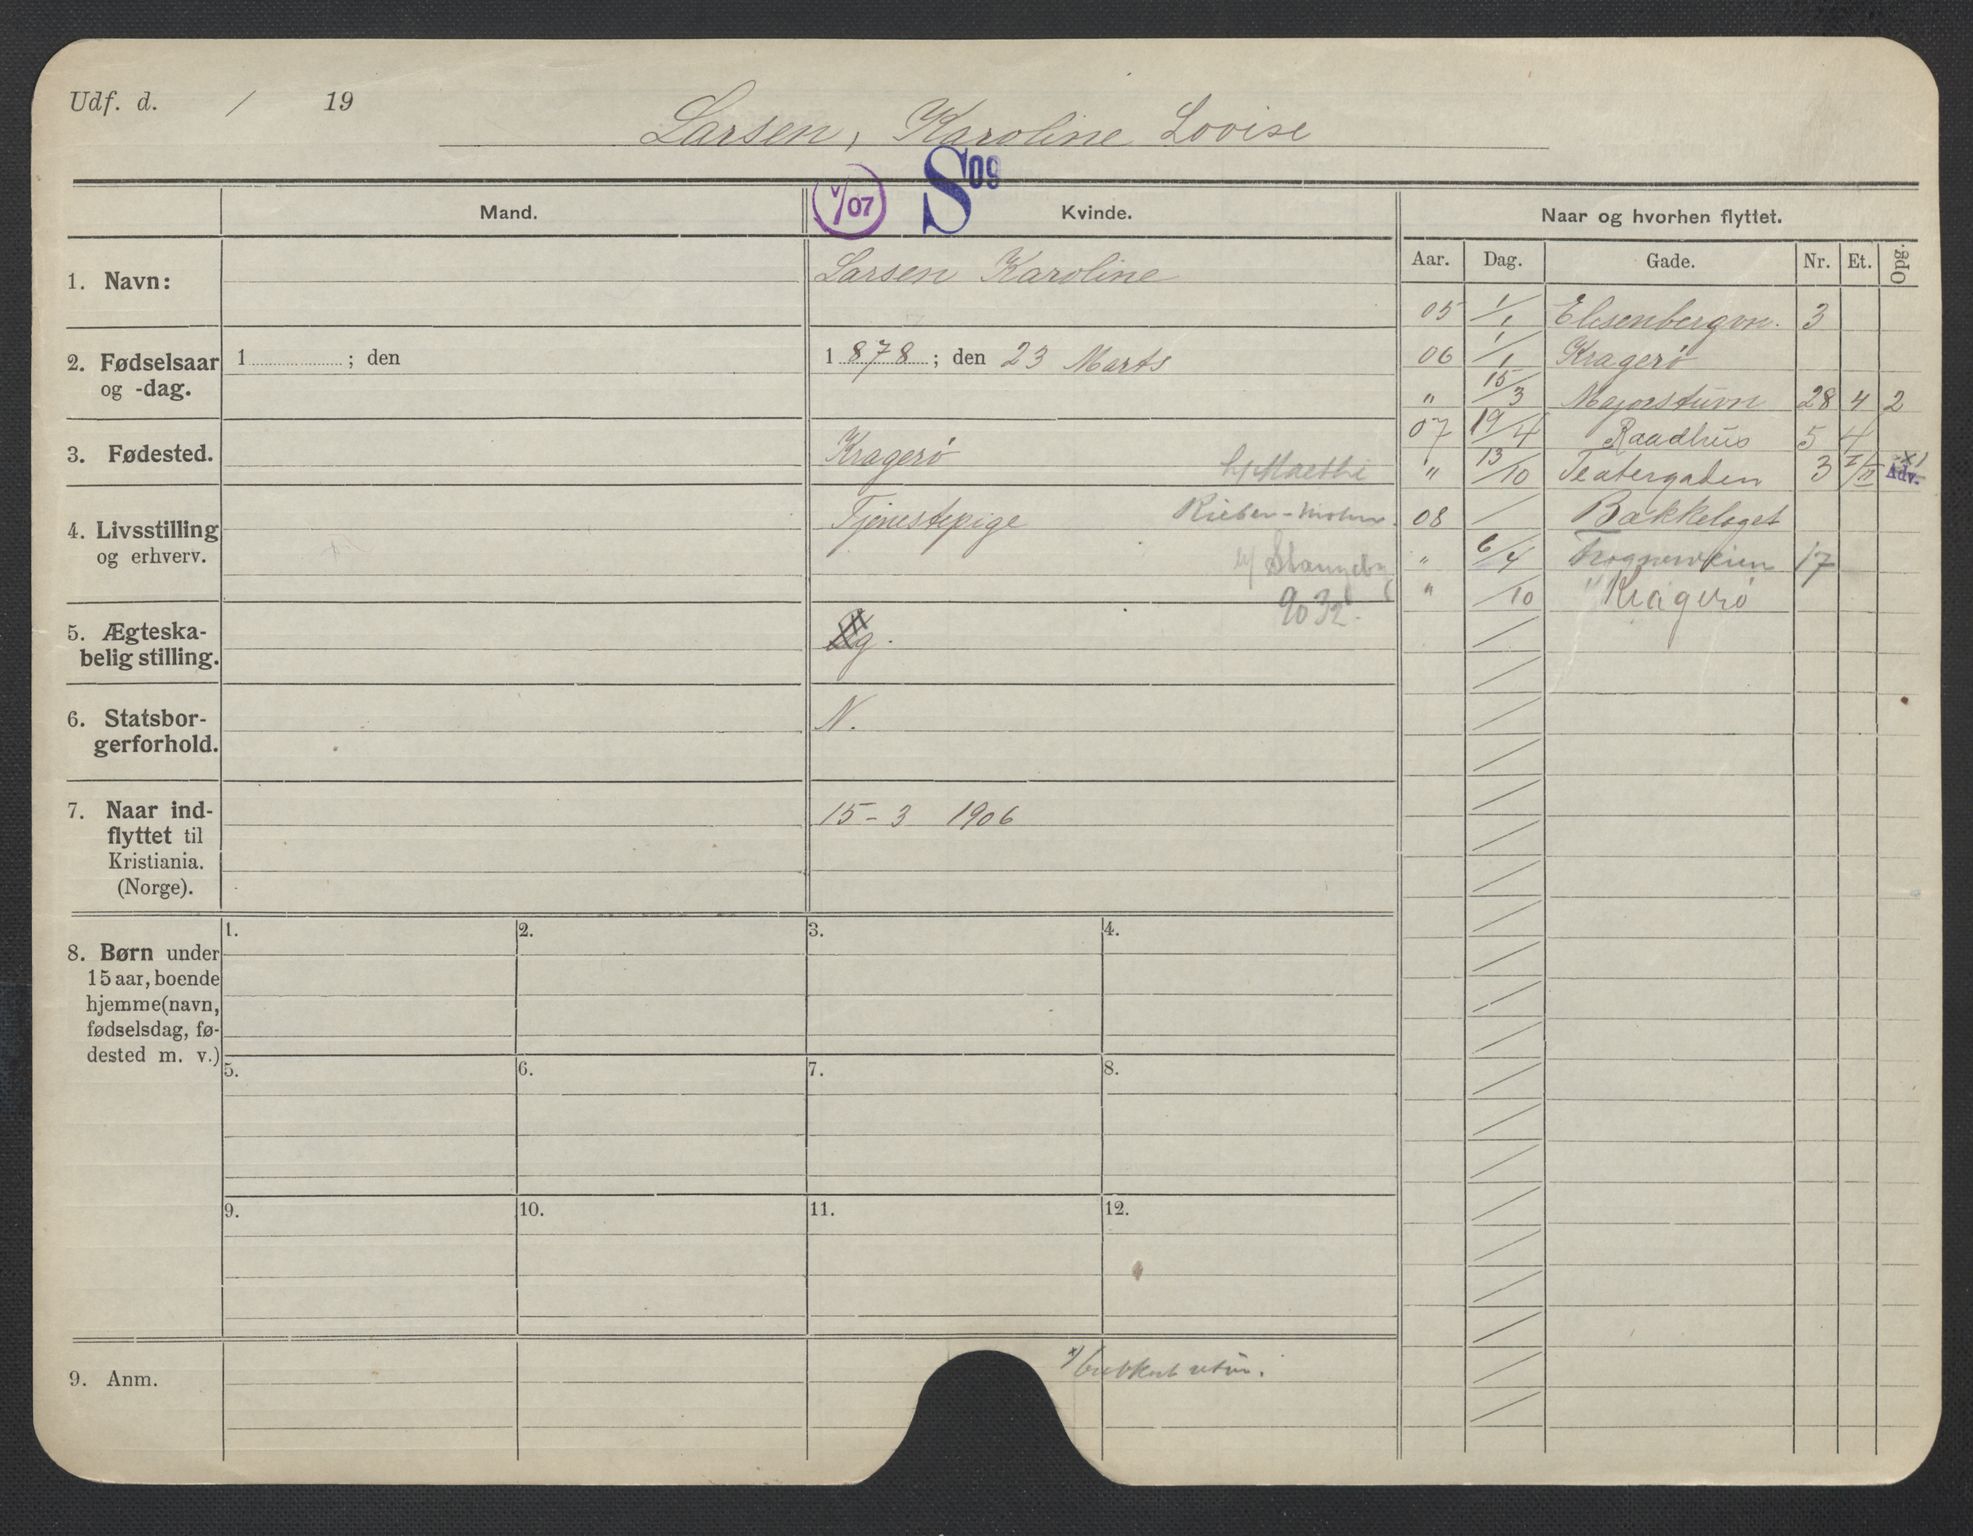 Udf. d. / 19
Larsen, Karoline Lovise
V/07 S 09
Mand. Kvinde. Naar og hvorhen flyttet.
Aar. Dag. Gade. Nr. Et. Opg.
1. Navn: Larsen Karoline
2. Fødselsaar og -dag.
1 ; den
1 878 ; den 23 Marts
3. Fødested. Kragerø
4. Livsstilling og erhverv. Tjenestepige
9032.
5. Ægteska-
belig stilling. Ug.
6. Statsbor-
gerforhold. N.
7. Naar ind-
flyttet til
Kristiania.
(Norge).
15-3 1906
05 1/1 Elisenbergvn. 3
06 1/1 Kragerø
" 15/3 Majorstuvn 28 4 2
07 19/4 Raadhus 5 4
" 13/10 Teatergaden 3 I/II x) Adv.
08 / Bækkelaget
" 6/4 Frognerveien 17
" /10 Kragerø
8. Børn under
15 aar, boende
hjemme (navn,
fødselsdag, fø-
dested m. v.)
1. 2. 3. 4.
5. 6. 7. 8.
9. 10. 11. 12.
9. Anm.
x)